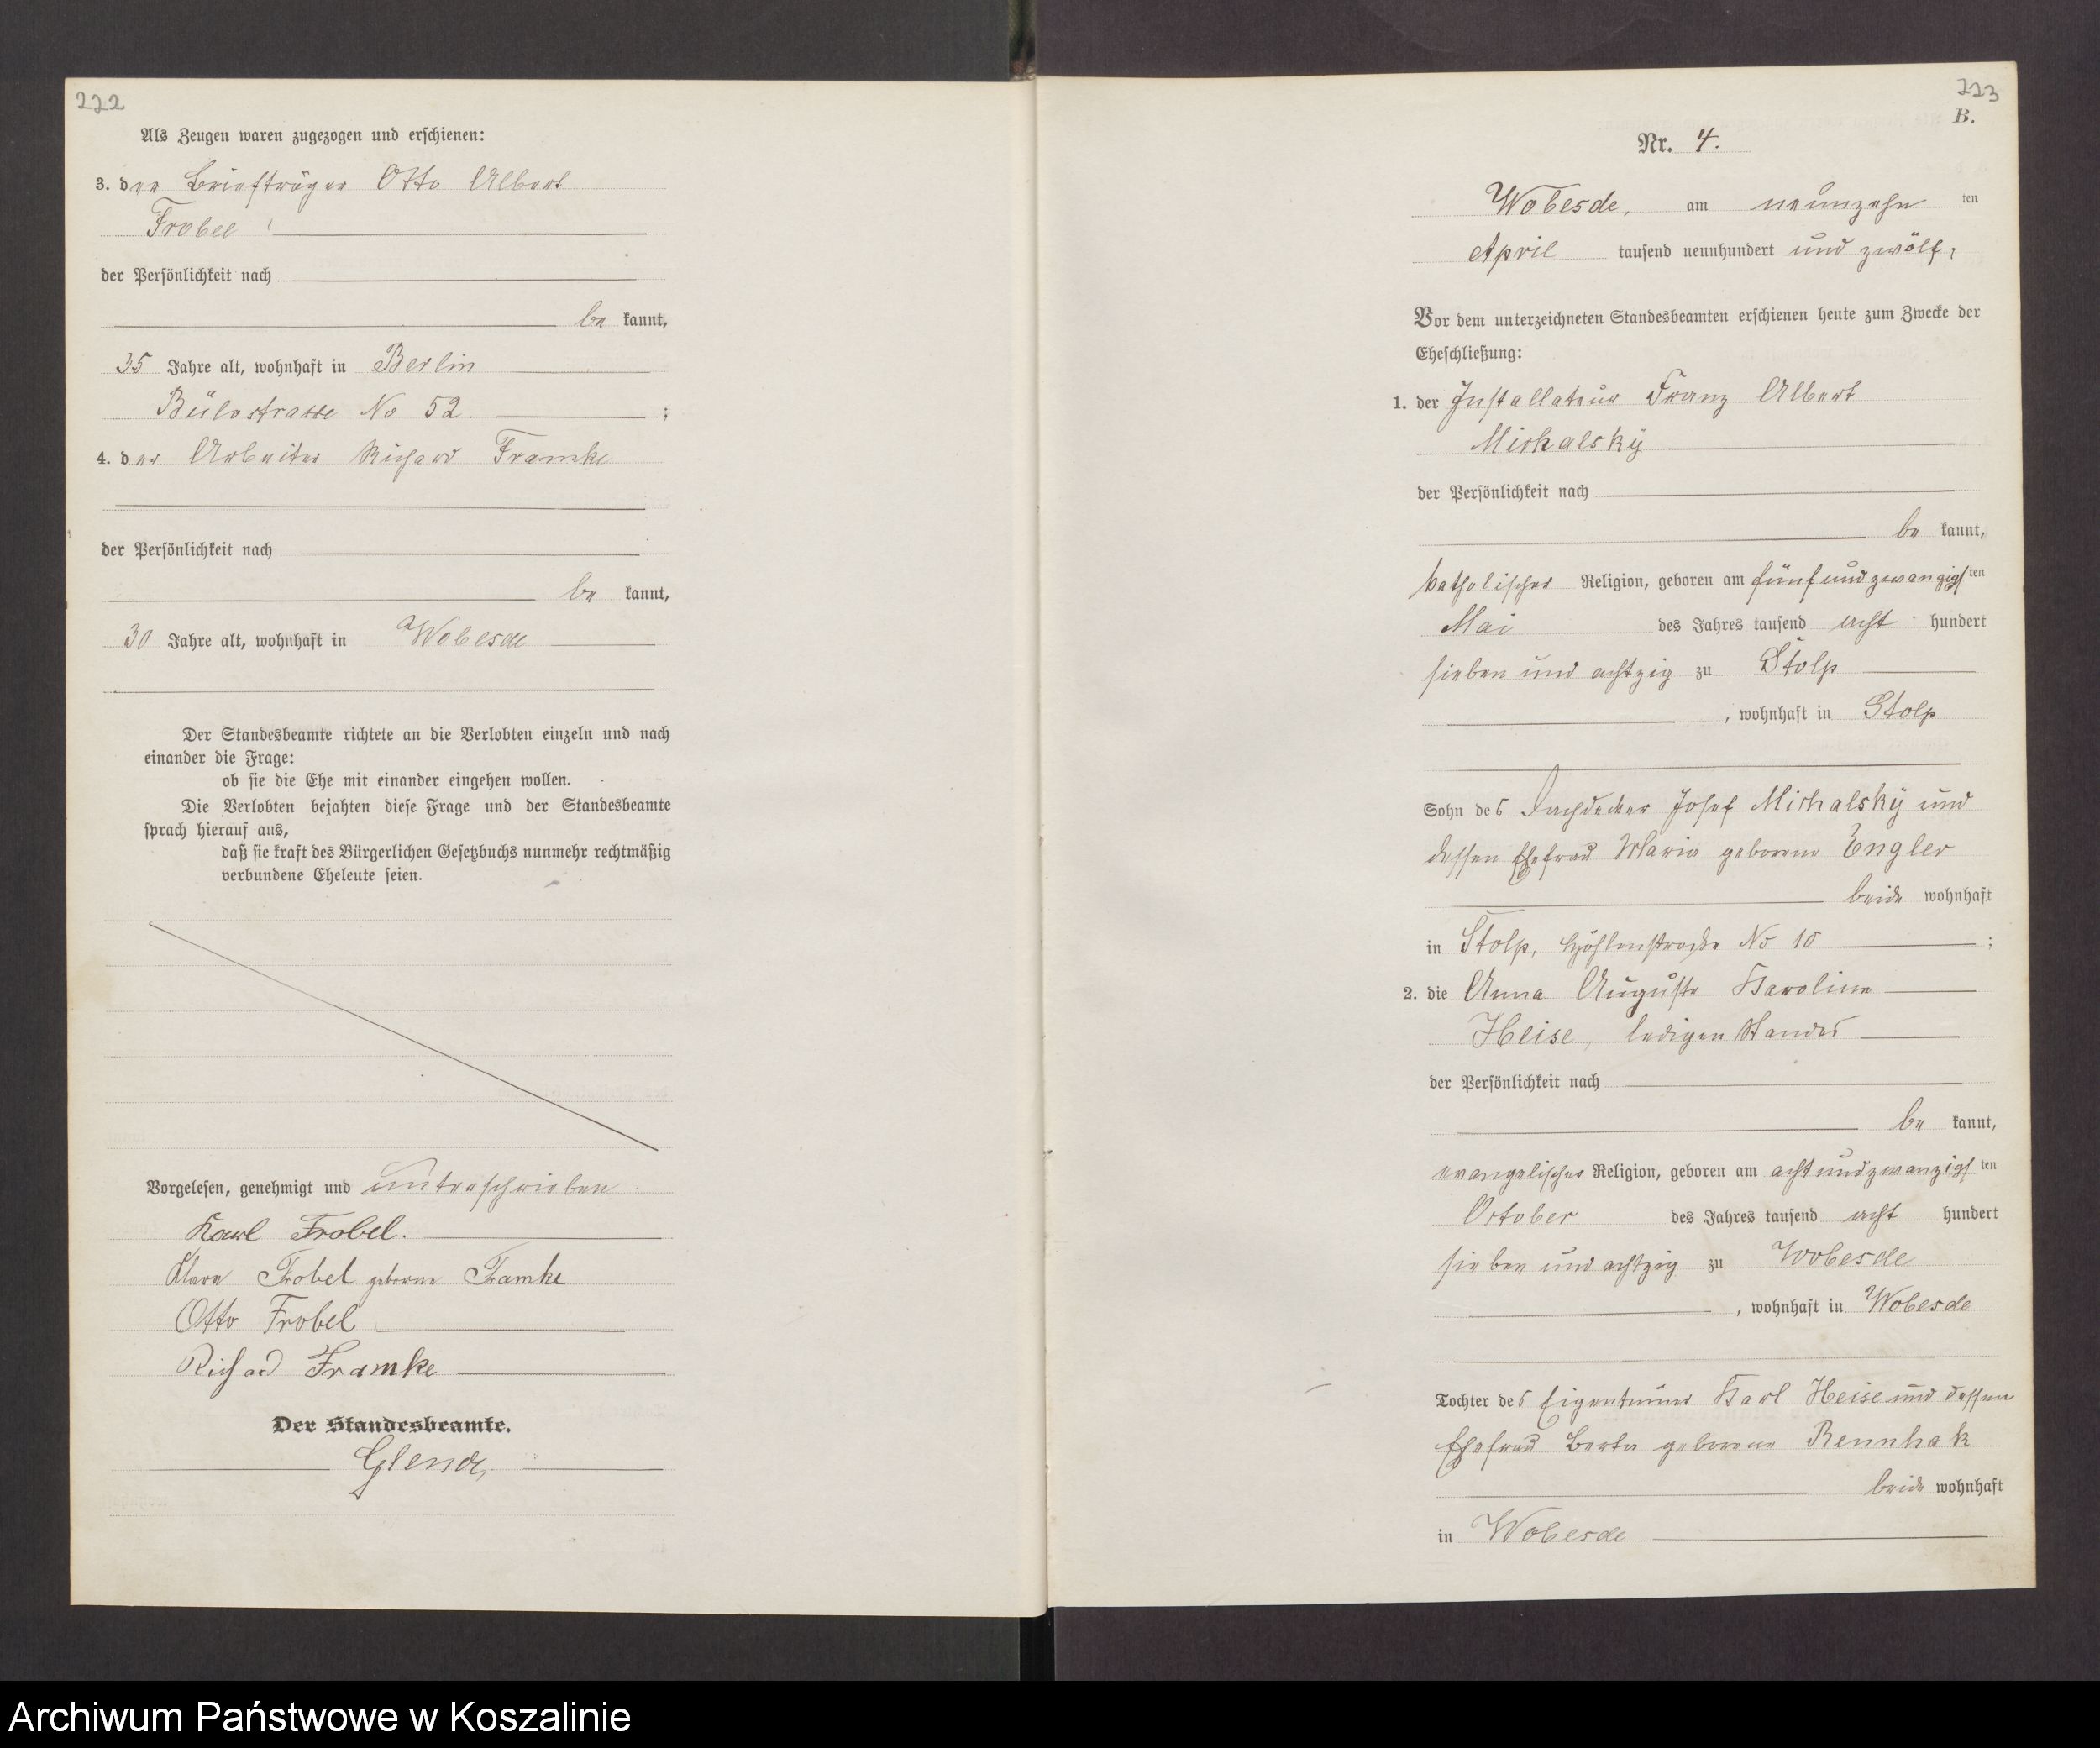 222
Als Zeugen waren zugezogen und erschienen:
3. der Briefträger Otto Albert
Frobel
der Persönlichkeit nach
be kannt,
35 Jahre alt, wohnhaft in Berlin
Bülostrasse No 52. ;
4. der Arbeiter Richard Framke
der Persönlichkeit nach
be kannt,
30 Jahre alt, wohnhaft in Wobesde
Der Standesbeamte richtete an die Verlobten einzeln und nach
einander die Frage:
ob sie die Ehe mit einander eingehen wollen.
Die Verlobten bejahten diese Frage und der Standesbeamte
sprach hierauf aus,
daß sie kraft des Bürgerlichen Gesetzbuchs nunmehr rechtmäßig
verbundene Eheleute seien.
Vorgelesen, genehmigt und unterschrieben
Karl Frobel.
Klara Frobel geborene Framke
Otto Frobel
Richard Framke
Der Standesbeamte.
223
B.
Nr. 4.
Wobesde, am neunzehn ten
April tausend neunhundert und zwölf;
Vor dem unterzeichneten Standesbeamten erschienen heute zum Zwecke der
Eheschließung:
1. der Installateur Franz Albert
Michalský
der Persönlichkeit nach
be kannt,
katholischer Religion, geboren am fünfundzwanzigs ten
Mai des Jahres tausend acht hundert
sieben und achtzig zu Stolp
, wohnhaft in Stolp
Sohn des Dachdecker Josef Michalský und
dessen Ehefrau Maria geborene Engler
beide wohnhaft
in Stolp, Höhlenstraße No 10 ;
2. die Anna Auguste Karoline
Heise, ledigen Standes
der Persönlichkeit nach
be kannt,
evangelischer Religion, geboren am achtundzwanzigs ten
October des Jahres tausend acht hundert
sieben und achtzig zu Wobesde
, wohnhaft in Wobesde
Tochter des Eigentümer Karl Heise und dessen
Ehefrau Berta geborene Rennhak
beide wohnhaft
in Wobesde
Archiwum Państwowe w Koszalinie